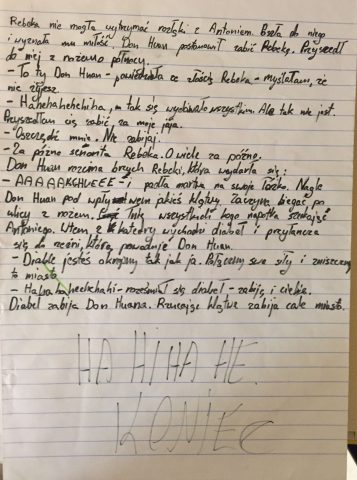 Reboka nie mogła wytrzymać rozłąki z Antoniem. Poszła do niego
i wyznała mu miłość. Don Huan postanowił zabić Rebokę. Przyszedł
do niej z nożem o północy.
- To ty Don Huan - powiedziała ze złością Reboka - myślałam, że
nie żyjesz.
- Hahehahehehiha, m tak się wydawało wszystkim. Ale tak nie jest.
Przyszedłam cię zabić, za moje jaja.
- Oszczędź mnie. Nie zabijaj.
- Za późno señiorita Reboka. O wiele za późno.
Don Huan rozcina brzuch Reboki, która wydarła się:
- AAAAAKGHUEEE - i padła martwa na swoje łóżko. Nagle
Don Huan pod wpływem jakieś klątwy. Zaczyna biegać po
ulicy z nożem. Tnie wszystkich kogo napotka szukając
Antoniego. Wtem z katedry wychodzi diabeł i przyłancza
się do rzeźni, którą powoduje Don Huan.
- Diable jesteś okropny tak jak ja. Połączmy swe siły i zniszczmy
to miasto.
- Hahahahechechahi - roześmiał się diabeł - zabiję i ciebie.
Diabeł zabija Don Huana. Rzucając klątwę zabija całe miasto.
HA HI HA HE.
KONIEC